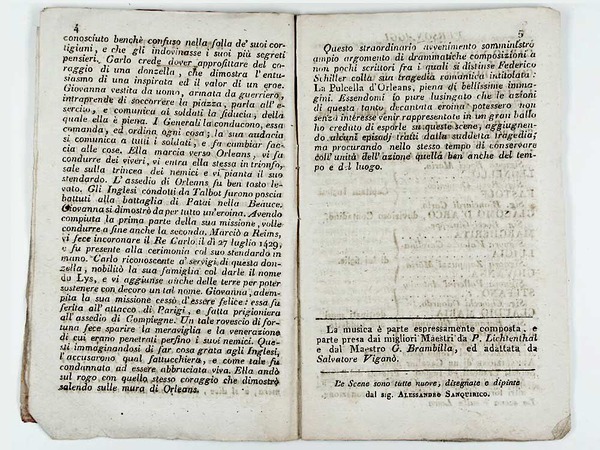 4
conosciuto benchè confuso nella folla de' suoi cor-
tigiani, e che gli indovinasse i suoi più segreti
pensieri. Carlo crede dover approfittare del co-
raggio di una donzella, che dimostra l'entu-
siasmo di una inspirata ed il valor di un eroe.
Giovanna vestita da uomo, armata da guerriero,
intraprende di soccorrere la piazza, parla all'e-
sercito, e comunica ai soldati la fiducia, della
quale ella è piena. I Generali la conducono, essa
comanda, ed ordina ogni cosa; la sua audacia
si comunica a tutti i soldati, e fa cambiar fac-
cia alle cose. Ella marcia verso Orleans, vi fa
condurre dei viveri, vi entra ella stessa in trionfo,
sale sulla trincea dei nemici e vi pianta il suo
stendardo. L'assedio di Orleans fu ben tosto le-
vato. Gli Inglesi condotti da Talbot furono poscia
battuti alla battaglia di Patai nella Beauce.
Giovanna si dimostrò da per tutto un'eroina. Avendo
compiuta la prima parte della sua missione, volle
condurre a fine anche la seconda. Marciò a Reins,
vi fece incoronare il Re Carlo il dì 27 luglio 1429,
e fu presente alla cerimonia col suo stendardo in
mano. Carlo riconoscente a' servigi di questa don-
zella, nobilitò la sua famiglia col darle il nome
du Lys, e vi aggiunse anche delle terre per poter
sostenere con decoro un tal nome. Giovanna, adem-
pita la sua missione cessò d'essere felice: essa fu
ferita all'attacco di Parigi, e fatta prigioniera
all'assedio di Compiegne. Un tale rovescio di for-
tuna fece sparire la meraviglia e la venerazione
di cui erano penetrati perfino i suoi nemici. Que-
sti immaginandosi di far cosa grata agli Inglesi,
l'accusarono qual fattucchiera, e come tale fu
condannata ad essere abbruciata viva. Ella andò
sul rogo con quello stesso coraggio che dimostrò
salendo sulle mura di Orleans.
5
Questo straordinario avvenimento somministrò
ampio argomento di drammatiche composizioni a
non pochi scrittori fra i quali si distinse Federico
Schiller colla sua tragedia romantica intitolata:
La Pulcella d'Orleans, piena di bellissime imma-
gini. Essendomi io pure lusingato che le azioni
di questa tanto decantata eroina potessero non
senza interesse venir rappresentate in un gran ballo
ho creduto di esporle su queste scene, aggiugnen-
do alcuni episodj tratti dalla suddetta tragedia;
ma procurando nello stesso tempo di conservare
coll'unità dell'azione quella ben anche del tem-
po e del luogo.
La musica è parte espressamente composta, e
parte presa dai migliori Maestri da P. Lichtenthal
e dal Maestro G. Brambilla, ed adattata da
Salvatore Viganò.
Le Scene sono tutte nuove, disegnate e dipinte
dal sig. ALESSANDRO SANQUIRICO.